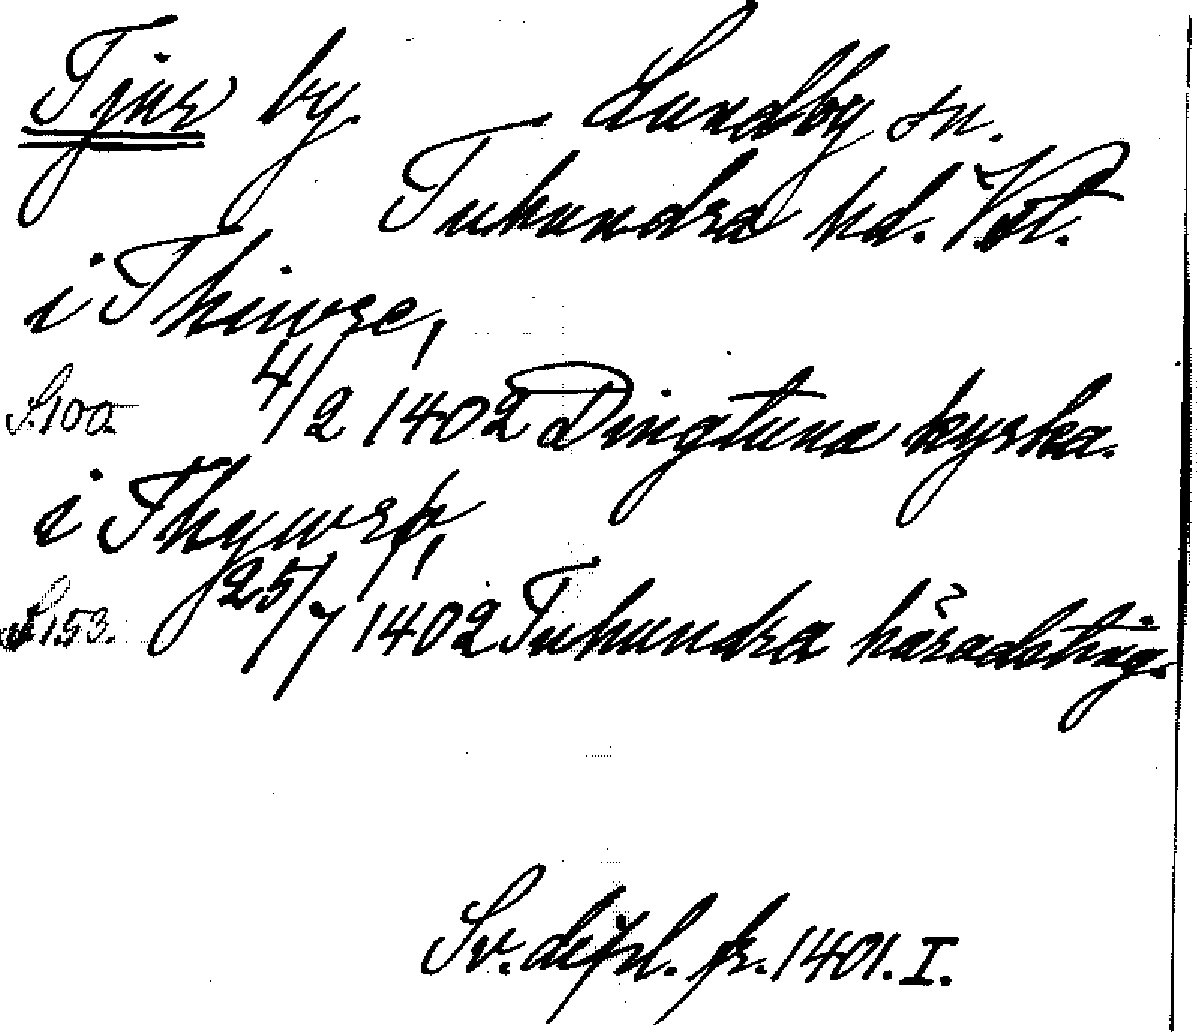 Tjur by. Lundby sn.
Tuhundra hd. Vstl.
i Thiwre,
S. 100. 4/2 1402 Dingtuna kyrka.
i Thywrp,
S. 153. 25/7 1402 Tuhundra häradsting.
Sv. dipl. fr. 1401. I.